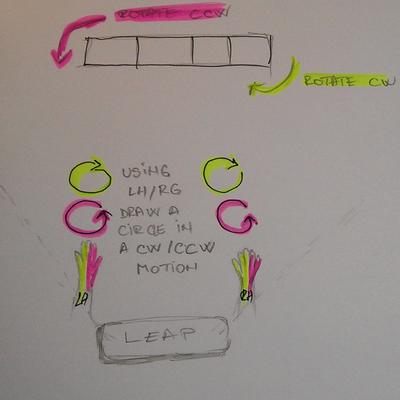 ROTATE CCW
ROTATE CW
USING
LH/RG
DRAW A
CIRCLE IN
A CW/CCW
MOTION
LH
RH
LEAP